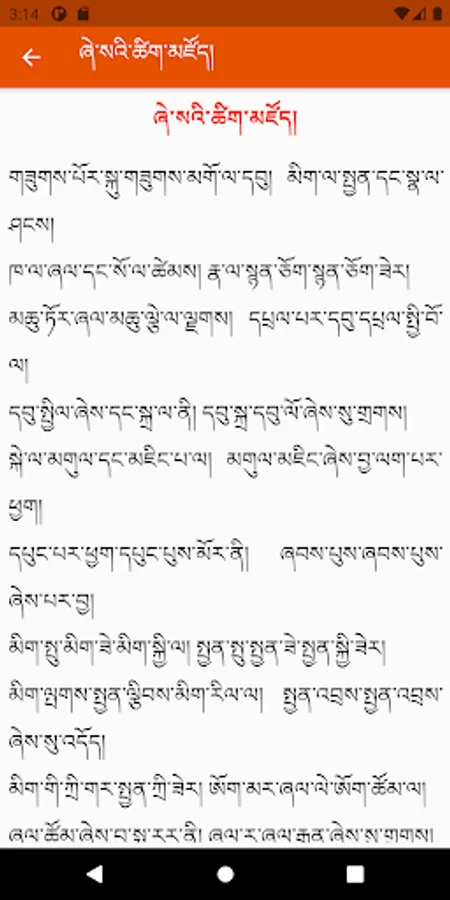 3:14
ཞེ་སའི་ཚིག་མཛོད།
ཞེ་སའི་ཚིག་མཛོད།
གཟུགས་པོར་སྐུ་གཟུགས་མགོ་ལ་དབུ། མིག་ལ་སྤྱན་དང་སྣ་ལ་
ཤངས།
ཁ་ལ་ཞལ་དང་སོ་ལ་ཚེམས། རྣ་ལ་སྙན་ཅོག་སྙན་ཅོག་ཟེར།
མཆུ་ཏོར་ཞལ་མཆུ་ལྕེ་ལ་ལྗགས། དཔྲལ་པར་དབུ་དཔྲལ་སྤྱི་བོ་
ལ།
དབུ་སྤྱིལ་ཞེས་དང་སྐྲ་ལ་ནི། དབུ་སྐྲ་དབུ་ལོ་ཞེས་སུ་གྲགས།
སྐེ་ལ་མགུལ་དང་མཇིང་པ་ལ། མགུལ་མཇིང་ཞེས་བྱ་ལག་པར་
ཕྱག།
དཔུང་པར་ཕྱག་དཔུང་པུས་མོར་ནི། ཞབས་པུས་ཞབས་པུས་
ཞེས་པར་བྱ།
མིག་སྤུ་མིག་ཟེ་མིག་སྐྱི་ལ། སྤྱན་སྤུ་སྤྱན་ཟེ་སྤྱན་སྐྱི་ཟེར།
མིག་ལྤགས་སྤྱན་ལྕིབས་མིག་རིལ་ལ། སྤྱན་འབྲས་སྤྱན་འབྲས་
ཞེས་སུ་འདོད།
མིག་གི་ཀྲི་གར་སྤྱན་ཀྲི་ཟེར། ཨོག་མར་ཞལ་ལེ་ཨོག་ཚོམ་ལ།
ཞལ་ཚོམ་ཞེས་བ་སྨ་རར་ནི། ཞལ་ར་ཞལ་རྒན་ཞེས་སུ་གྲགས།